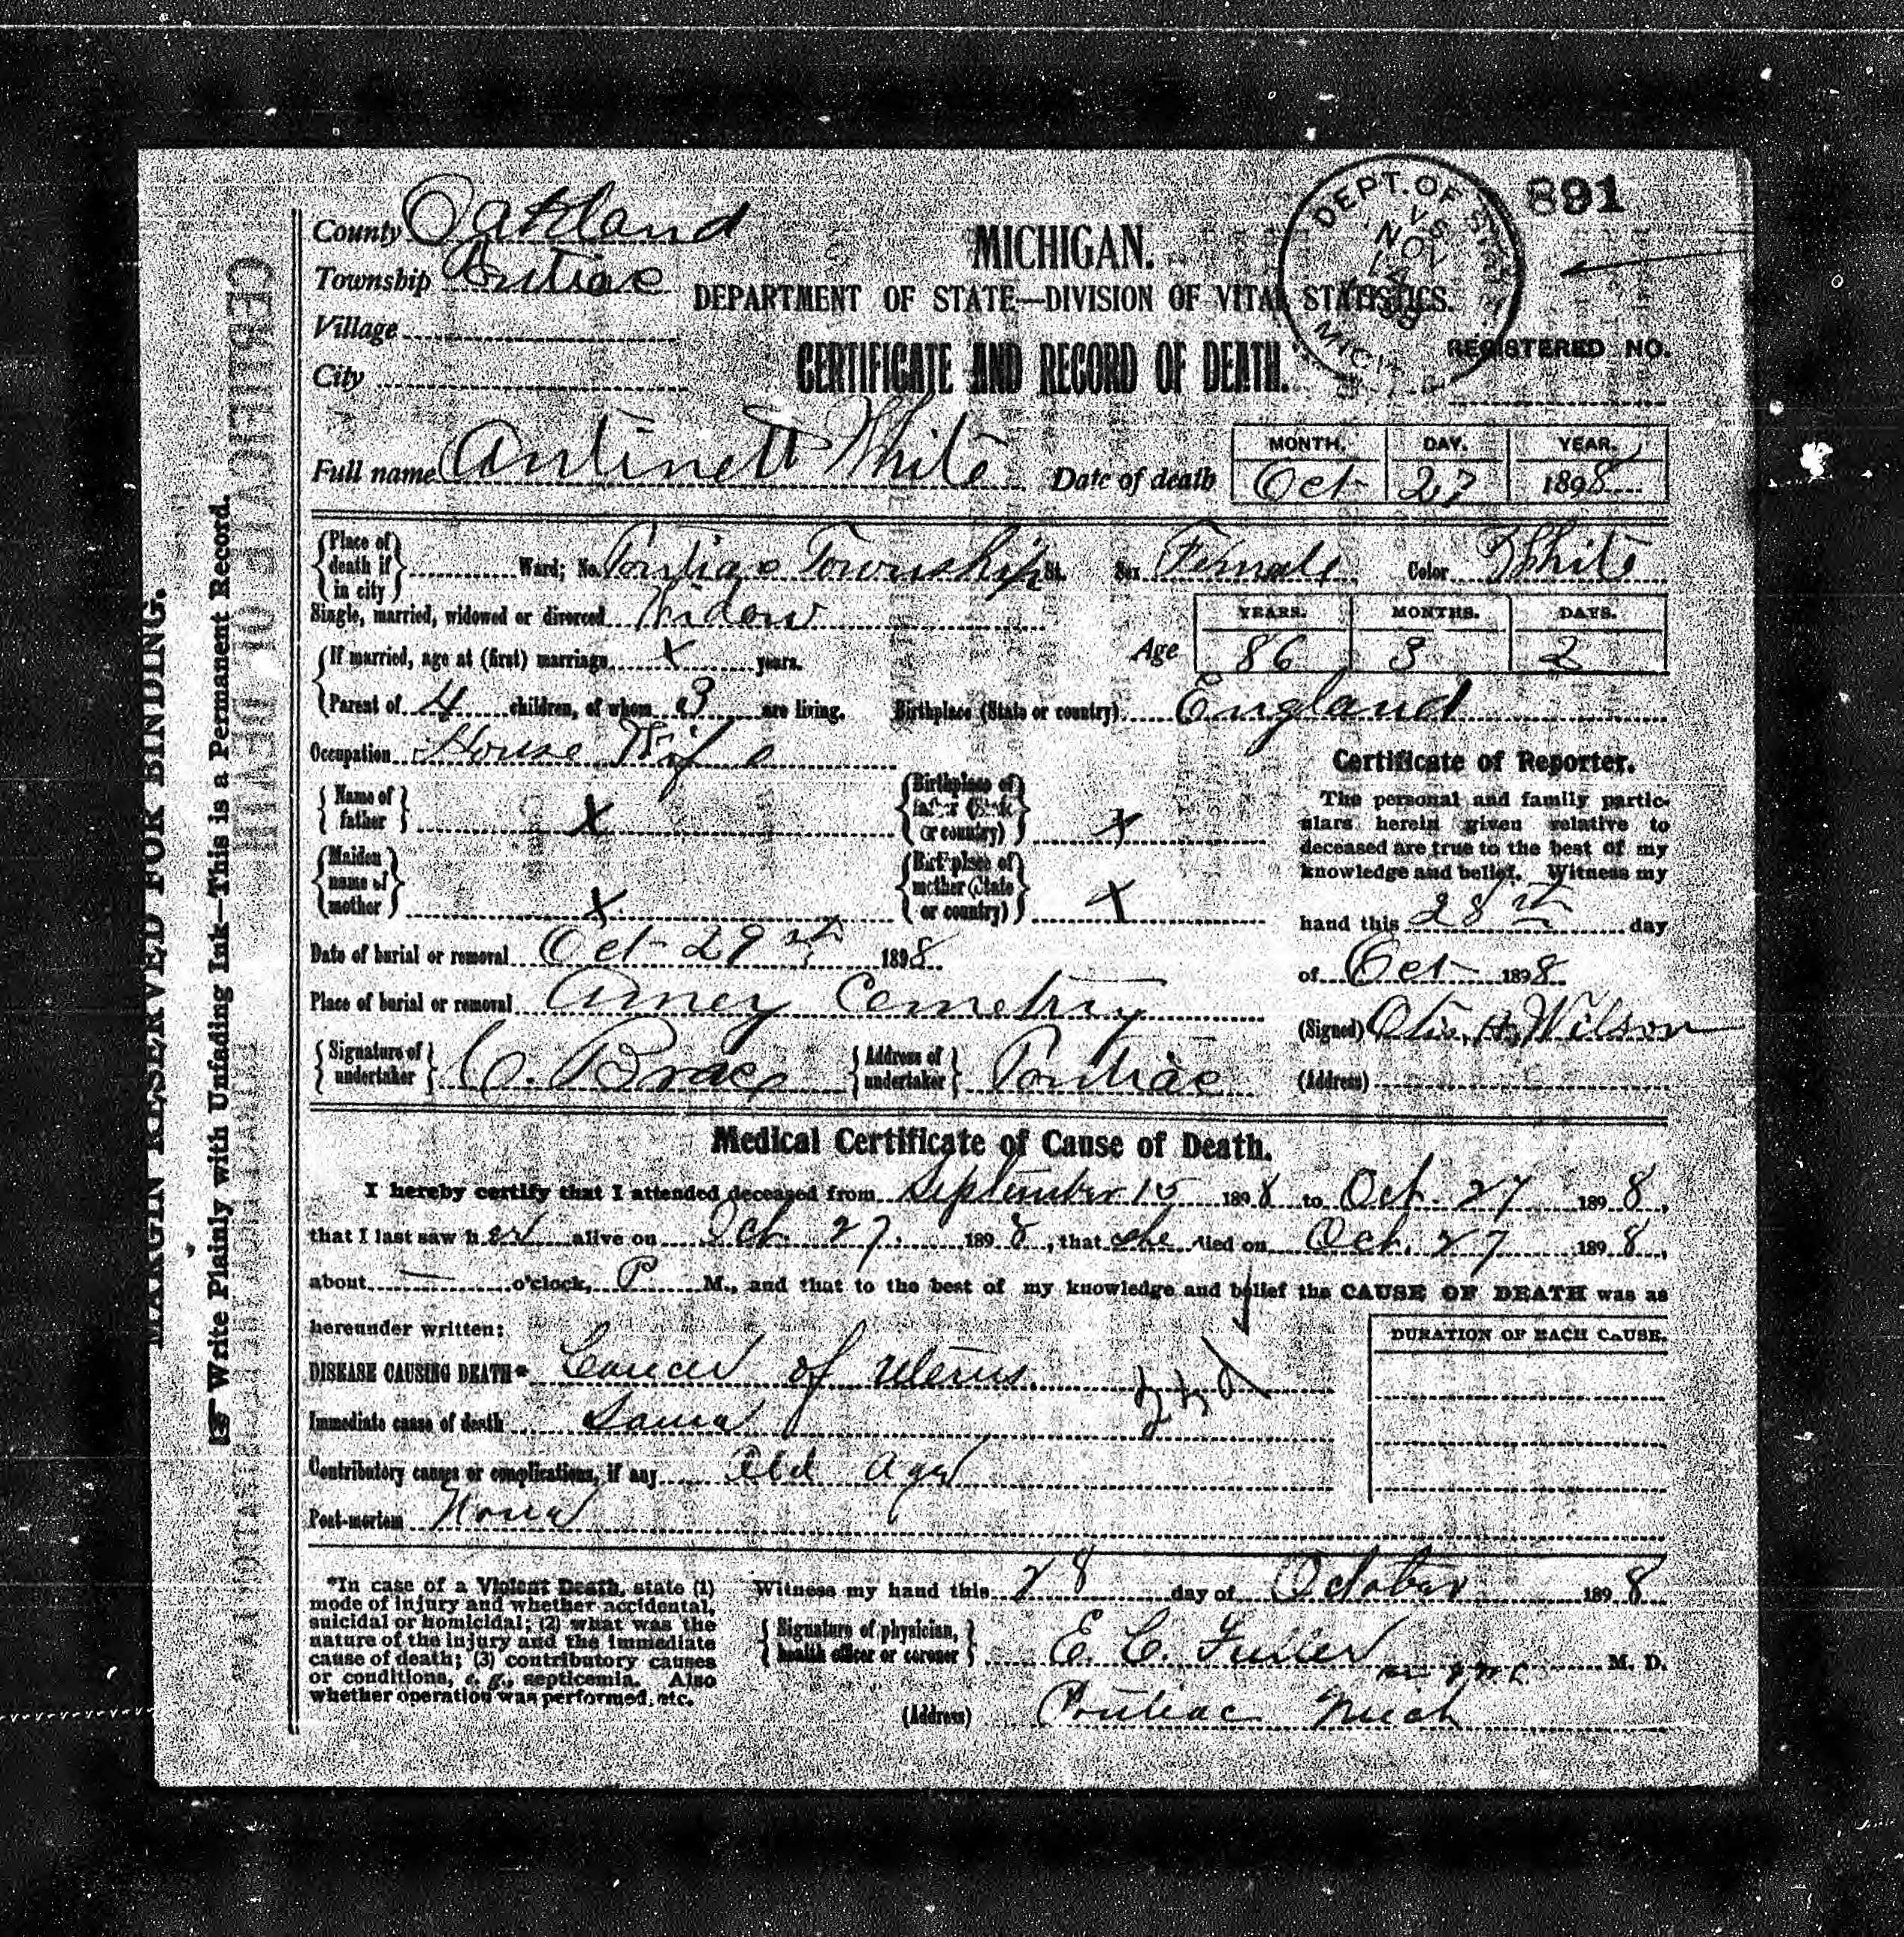 891
DEPT. OF STATE
VS
NOV
14
MICH
County Oakland
Township Pontiac
Village
City
MICHIGAN.
DEPARTMENT OF STATE—DIVISION OF VITAL STATISTICS.
CERTIFICATE AND RECORD OF DEATH.
REGISTERED NO.
Full name Antinett White Date of death
MONTH. DAY. YEAR.
Oct 27 1898
{Place of death if in city} Ward; No. Pontiac Township St. Sex Female Color White
Single, married, widowed or divorced Widow
{If married, age at (first) marriage X years.
Age
YEARS. MONTHS. DAYS.
86 3 2
Parent of 4 children, of whom 3 are living. Birthplace (State or country) England
Occupation House Wife
{Name of father} X {Birthplace of father (State or country)} X
{Maiden name of mother} X {Birthplace of mother (State or country)} X
Date of burial or removal Oct 29th 1898
Place of burial or removal Amey Cemetry
{Signature of undertaker} C. Brace {Address of undertaker} Pontiac
Certificate of Reporter.
The personal and family partic-
ulars herein given relative to
deceased are true to the best of my
knowledge and belief. Witness my
hand this 28th day
of Oct 1898
(Signed) Otis H Wilson
(Address)
Medical Certificate of Cause of Death.
I hereby certify that I attended deceased from September 15 1898 to Oct. 27 1898,
that I last saw her alive on Oct. 27. 1898, that she died on Oct. 27 1898,
about — o'clock, P M., and that to the best of my knowledge and belief the CAUSE OF DEATH was as
hereunder written:
DURATION OF EACH CAUSE.
DISEASE CAUSING DEATH* Cancer of uterus
Immediate cause of death Same
Contributory causes or complications, if any Old Age
Post-mortem None
*In case of a Violent Death, state (1)
mode of injury and whether accidental,
suicidal or homicidal; (2) what was the
nature of the injury and the immediate
cause of death; (3) contributory causes
or conditions, e. g., septicemia. Also
whether operation was performed, etc.
Witness my hand this 28 day of October 1898
{Signature of physician, health officer or coroner} E. C. Fuller M. D.
(Address) Pontiac Mich
MARGIN RESERVED FOR BINDING.
Write Plainly with Unfading Ink—This is a Permanent Record.